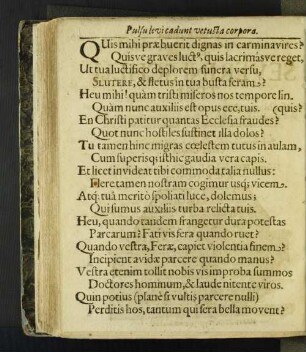 Pulsu levi cadunt vetusta corpora.
QUis mihi præbuerit dignas in carmina vires?
Quis ve graves luctꝰ, quis lacrimàs ve reget,
Ut tua luctifico deplorem funera versu,
SLUTERE, & fletus in tua busta feram?
Heu mihi! quàm tristi miseros nos tempore linquis?
Quàm nunc auxiliis est opus ecce, tuis.
En Christi patitur quantas Ecclesia fraudes?
Quot nunc hostiles sustinet illa dolos?
Tu tamen hinc migras cœlestem tutus in aulam,
Cum superisq; isthic gaudia vera capis.
Et licet invideat tibi commoda talia nullus:
Flere tamen nostram cogimur usq; vicem.
Atq; tuâ meritò spoliati luce, dolemus;
Qui sumus auxiliis turba relicta tuis.
Heu, quando tandem frangetur dura potestas
Parcarum? Fati vis fera quando ruet?
Quando vestra, Feræ, capiet violentia finem?
Incipient avidæ parcere quando manus?
Vestra etenim tollit nobis vis improba summos
Doctores hominum, & laude nitente viros.
Quin potius (planè si vultis parcere nulli)
Perditis hos, tantum qui fera bella movent?